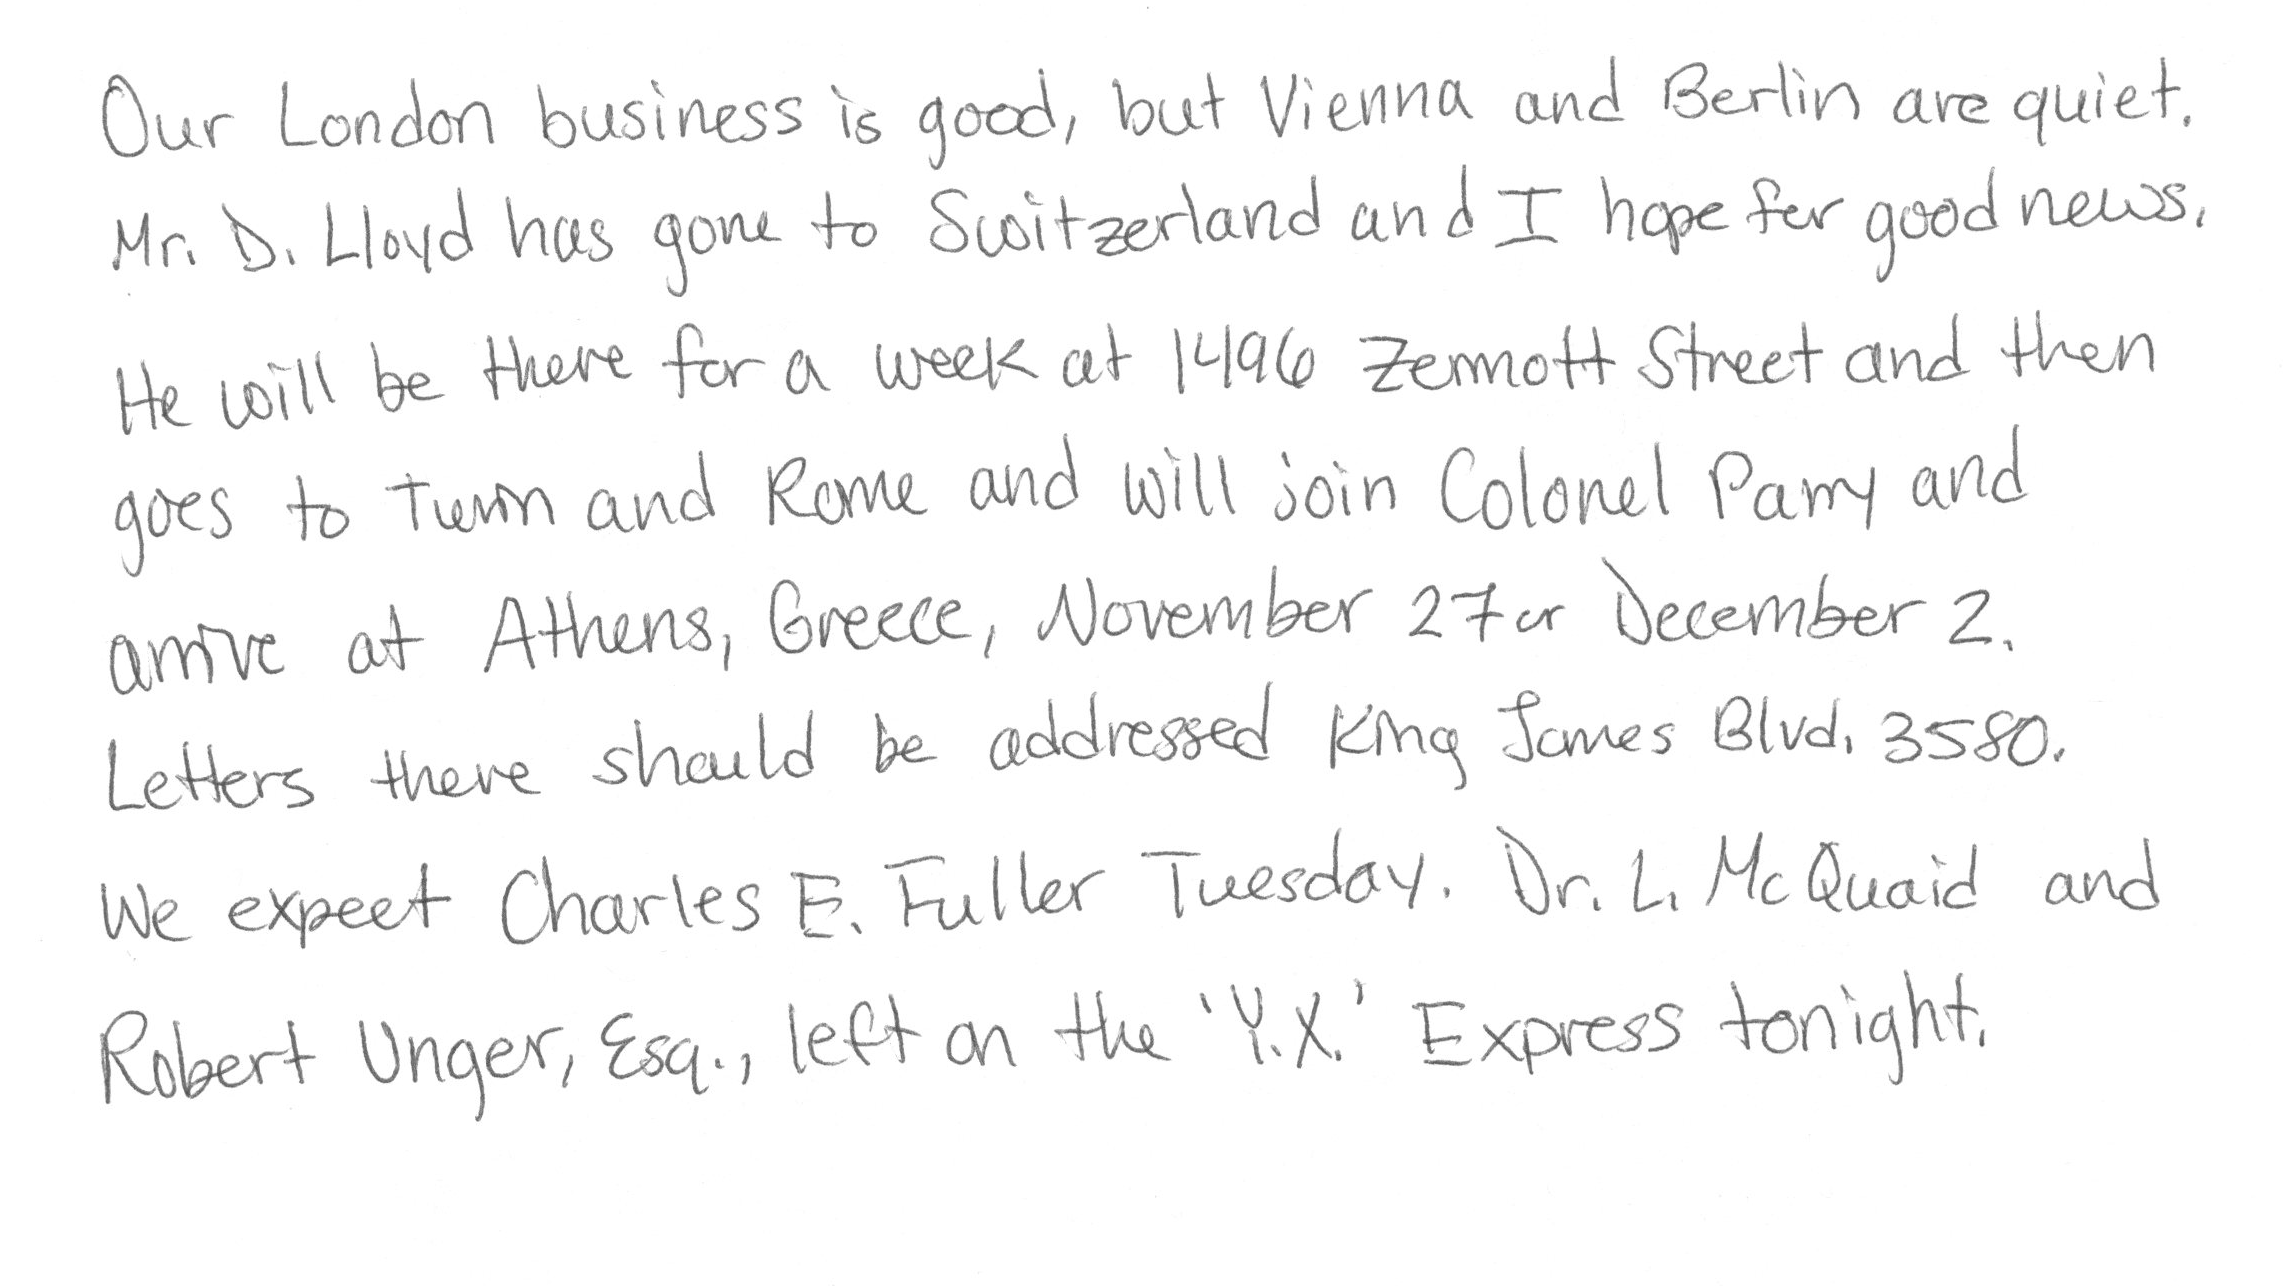 Our London business is good, but Vienna and Berlin are quiet.
Mr. D. Lloyd has gone to Switzerland and I hope for good news.
He will be there for a week at 1496 Zermott Street and then
goes to Turin and Rome and will join Colonel Parry and
arrive at Athens, Greece, November 27 or December 2.
Letters there should be addressed King James Blvd. 3580.
We expect Charles E. Fuller Tuesday. Dr. L. McQuaid and
Robert Unger, Esq., left on the 'Y.X.' Express tonight.